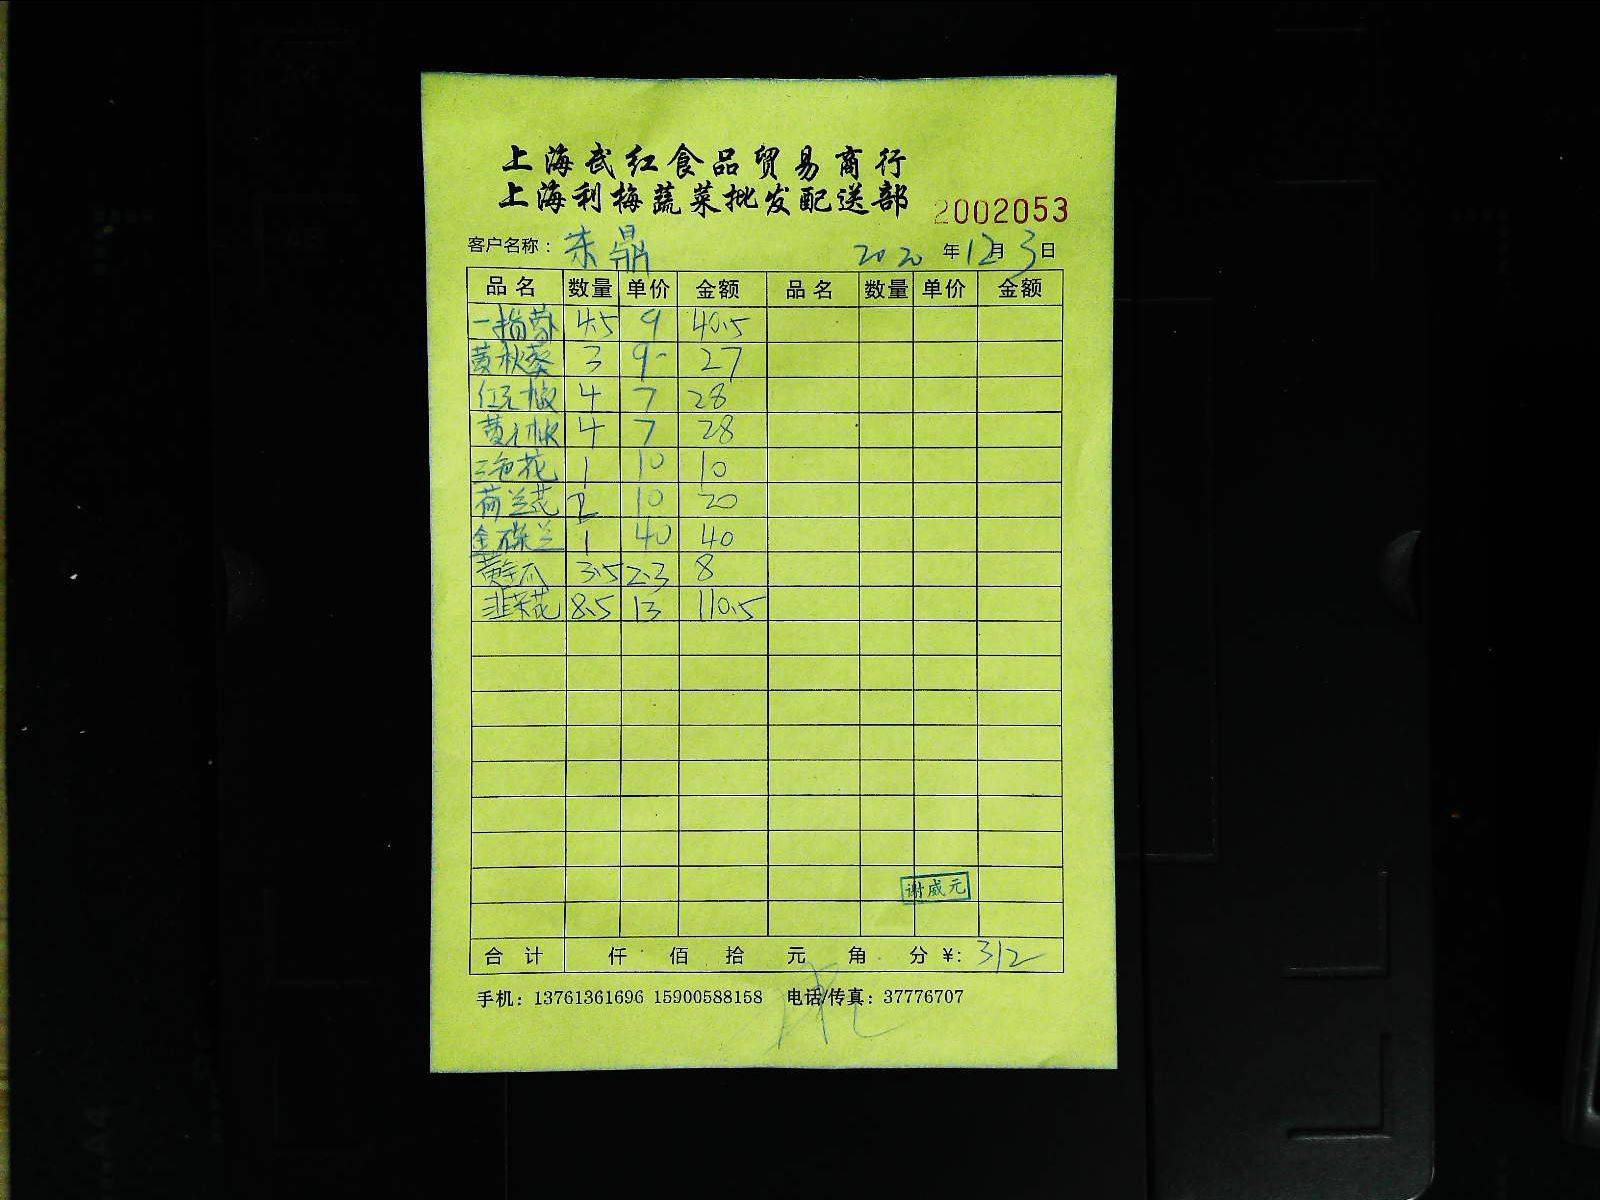 上海武红食品贸易商行
上海利梅蔬菜批发配送部
2002053
客户名称： 朱鼎 2020 年 12 月 3 日
品名 数量 单价 金额 品名 数量 单价 金额
4.5 9 40.5
黄秋葵 3 9 27
红元椒 4 7 28
黄元椒 4 7 28
三色花 1 10 10
荷兰花 2 10 20
金碟兰 1 40 40
黄金瓜 3.5 2.3 8
韭菜花 8.5 13 110.5
谢威元
合计 仟 佰 拾 元 角 分 ¥: 312
手机：13761361696 15900588158 电话/传真：37776707